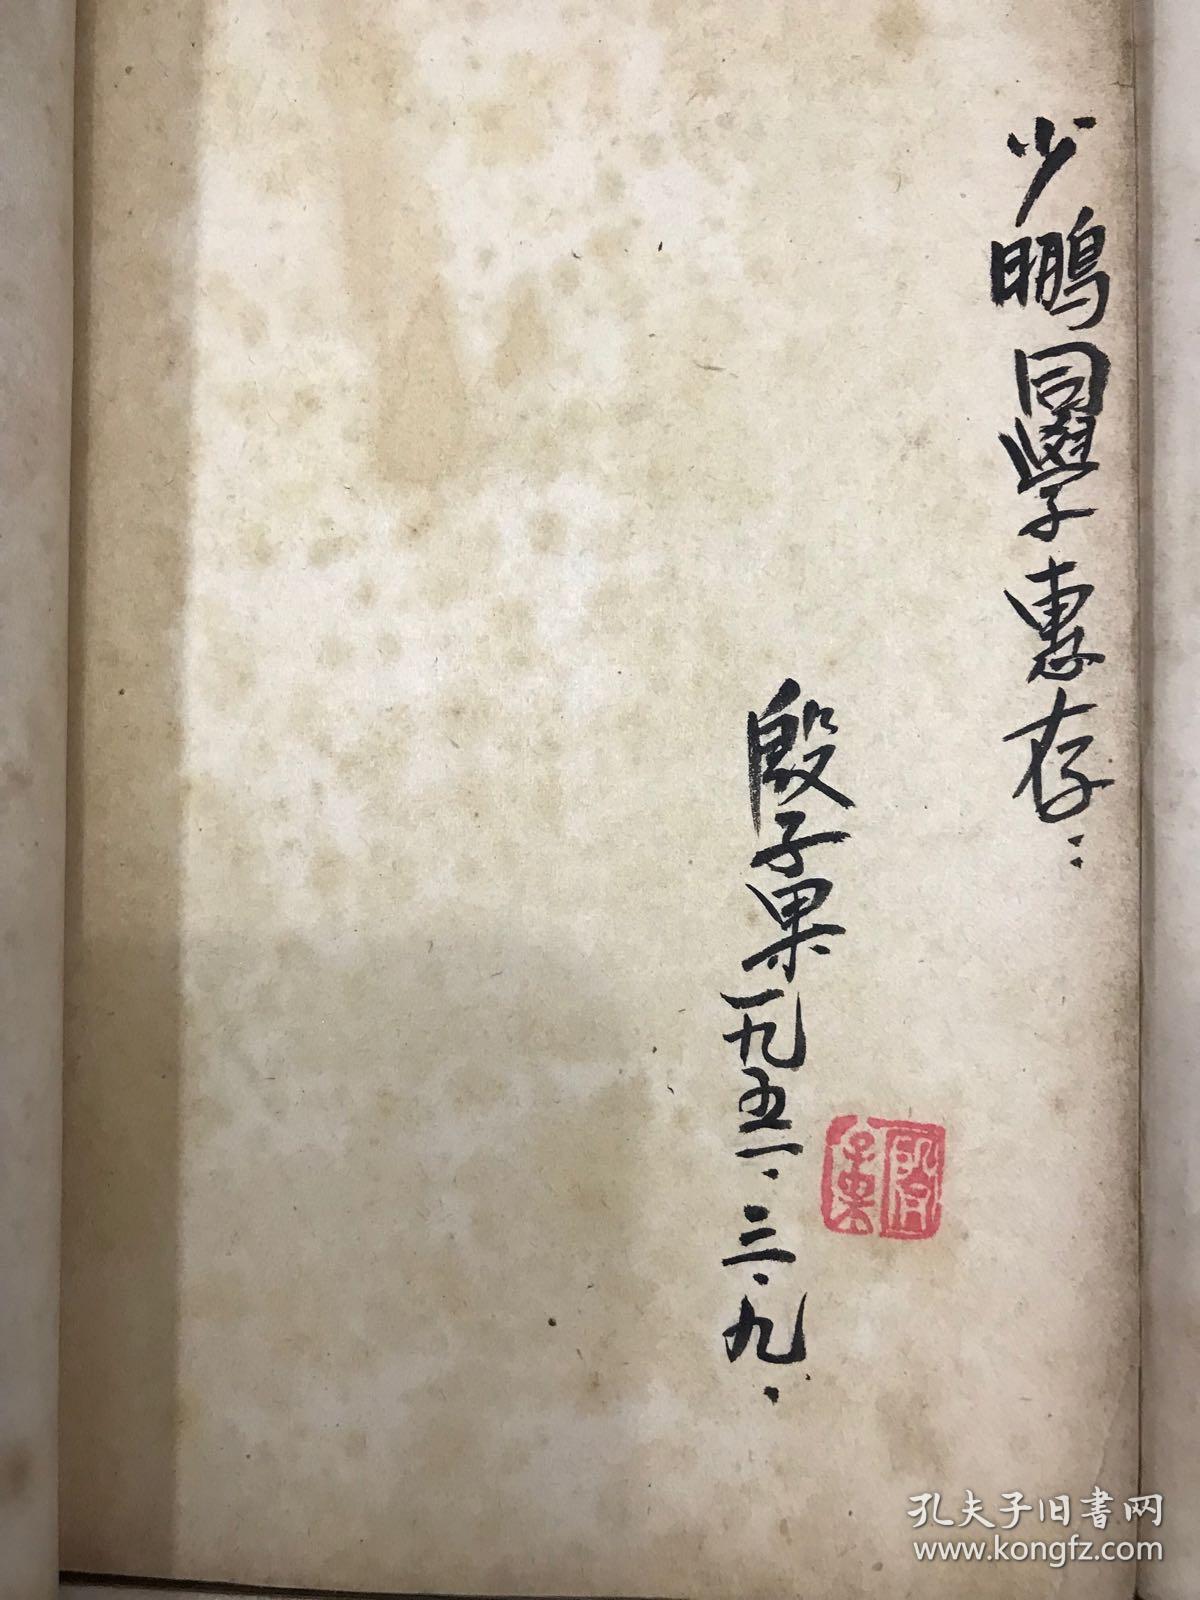 少鵬同學惠存：
殷子果一九五一．三．九．
殷子果
孔夫子旧書网
www.kongfz.com